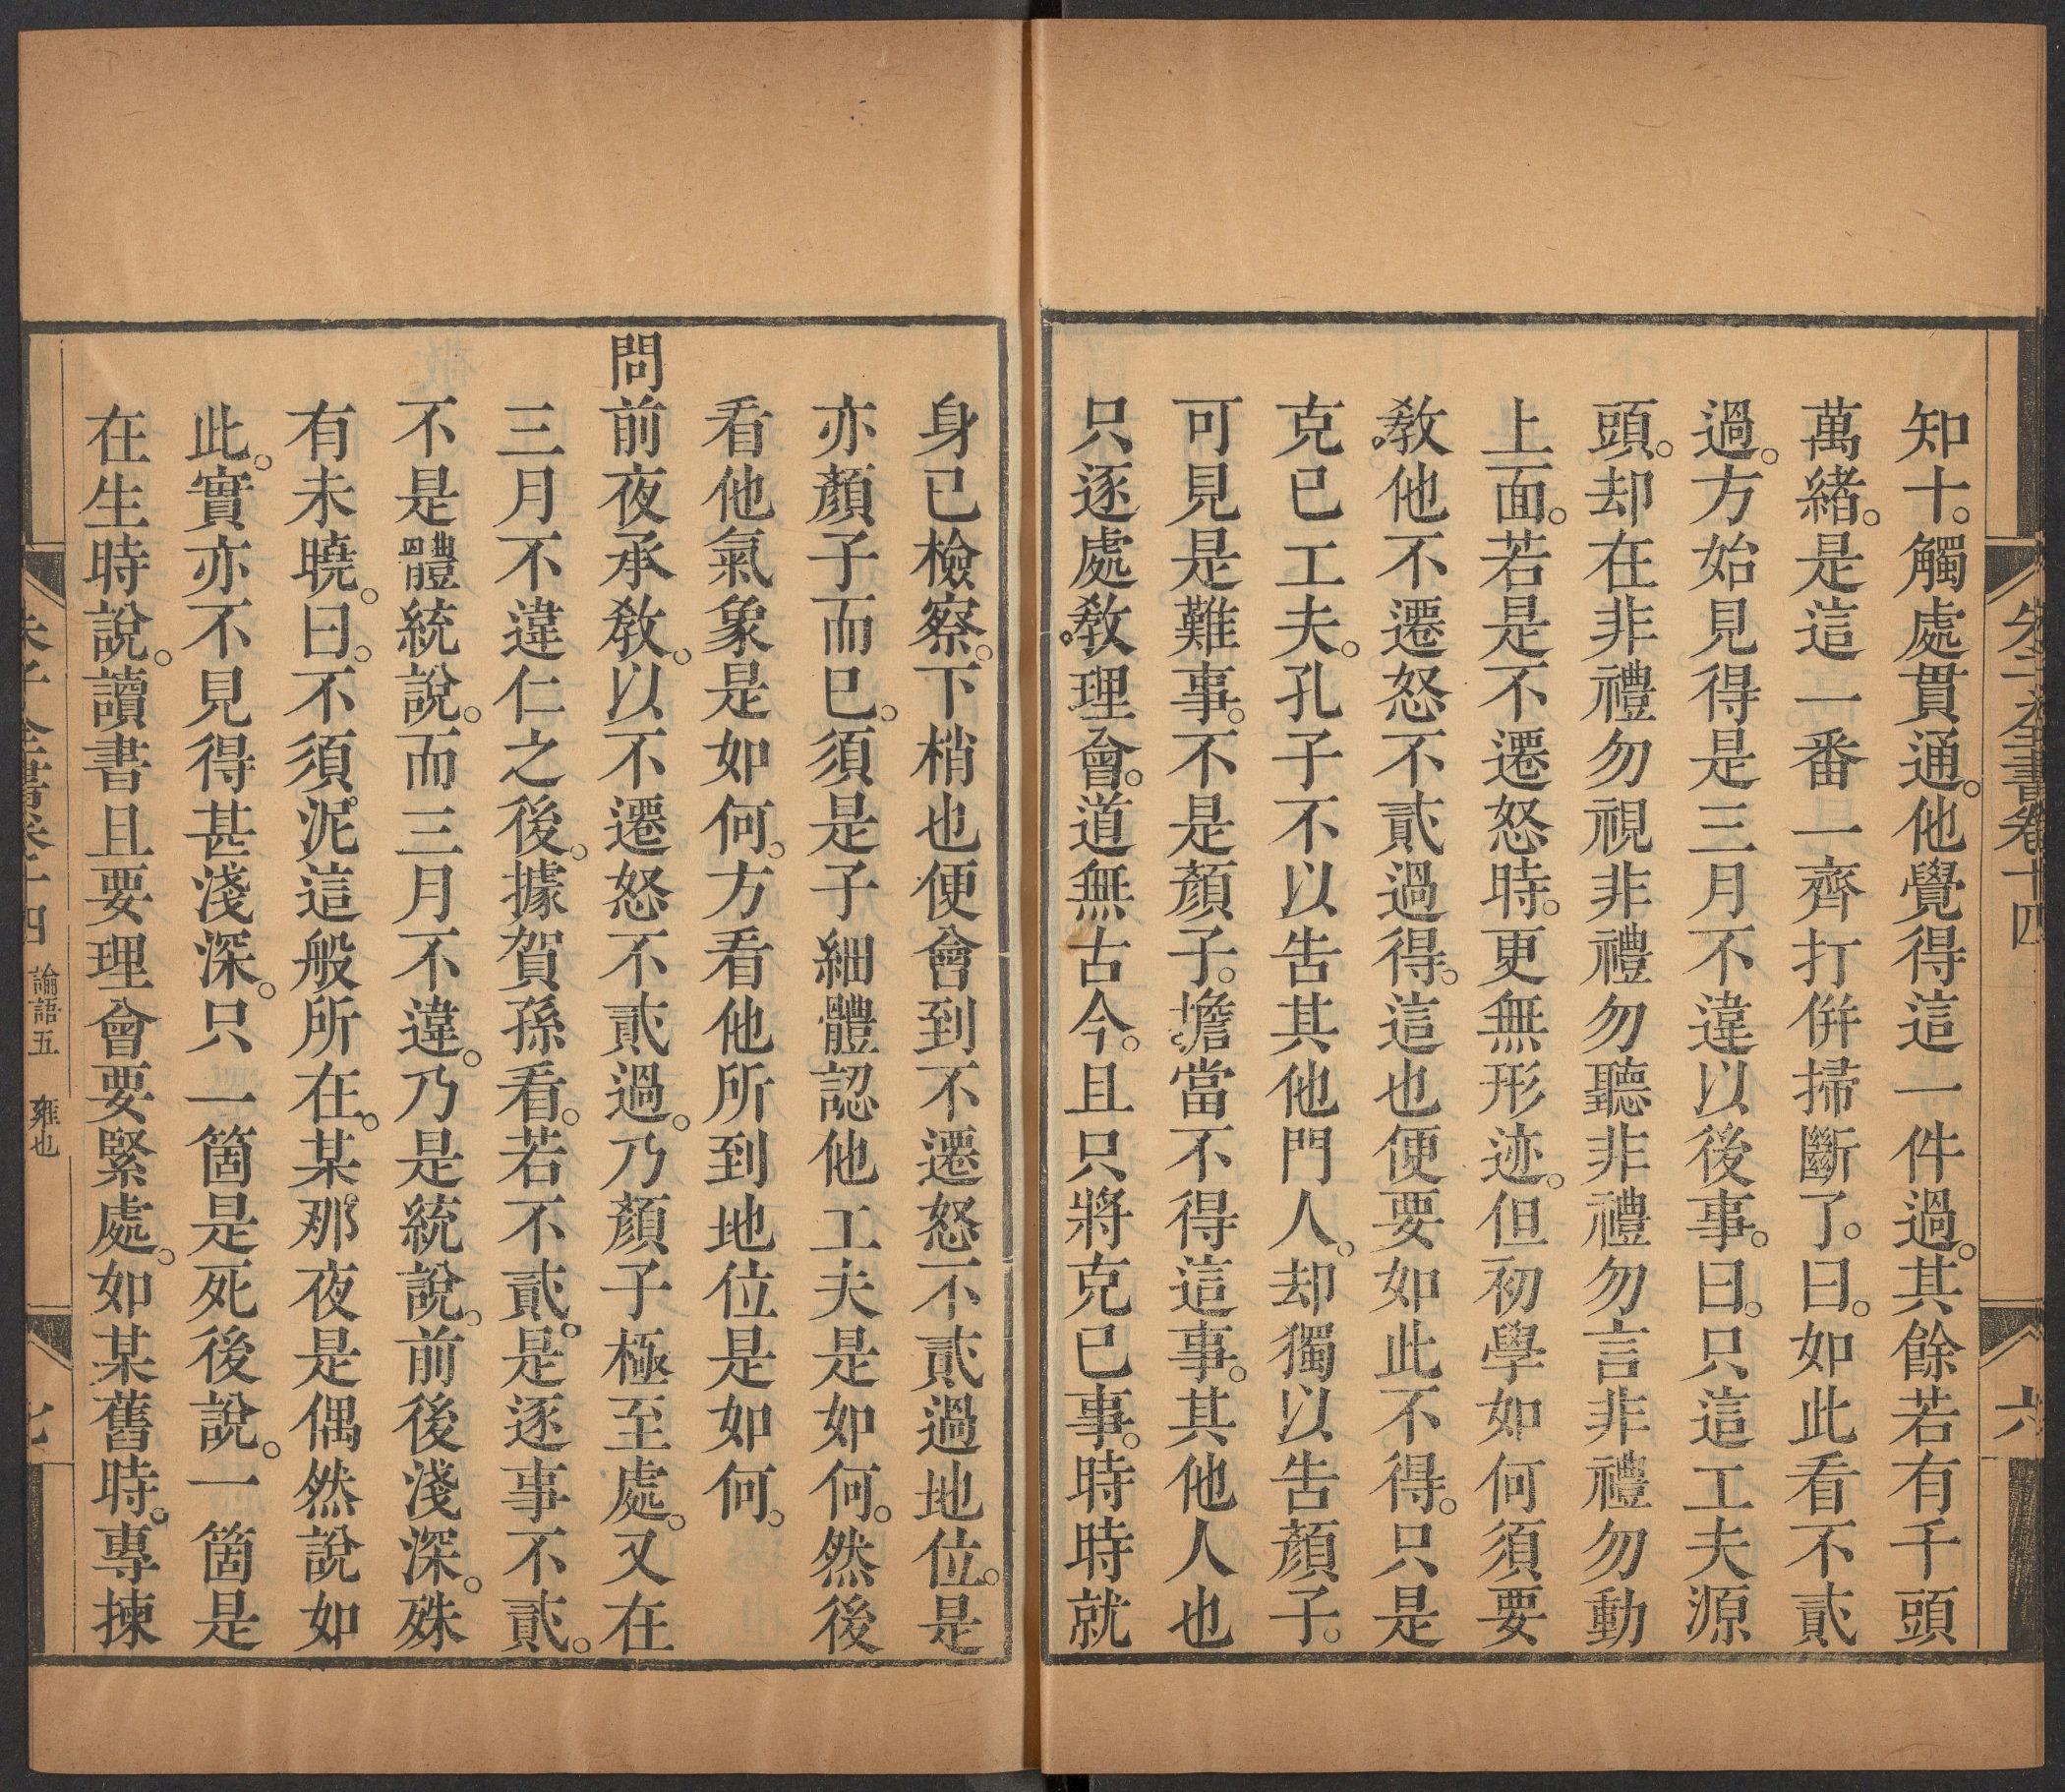 朱子全書卷十四
六
知十。觸處貫通。他覺得這一件過。其餘若有千頭
萬緒。是這一番一齊打併掃斷了。曰。如此看不貳
過。方始見得是三月不違以後事。曰。只這工夫源
頭。却在非禮勿視非禮勿聽非禮勿言非禮勿動
上面。若是不遷怒時。更無形迹。但初學如何須要
教他不遷怒不貳過得。這也便要如此不得。只是
克已工夫。孔子不以告其他門人。却獨以告顏子。
可見是難事。不是顏子。擔當不得這事。其他人也
只逐處教理會。道無古今。且只將克已事。時時就
身已檢察。下梢也便會到不遷怒不貳過地位。是
亦顏子而已。須是子細體認他工夫是如何。然後
看他氣象是如何。方看他所到地位是如何。
問前夜承教。以不遷怒不貳過。乃顏子極至處。又在
三月不違仁之後。據賀孫看。若不貳。是逐事不貳。
不是體統說。而三月不違。乃是統說。前後淺深。殊
有未曉。曰。不須泥這般所在。某那夜是偶然說如
此。實亦不見得甚淺深。只一箇是死後說。一箇是
在生時說。讀書且要理會要緊處。如某舊時。專揀
朱子全書卷十四 論語五 雍也
七